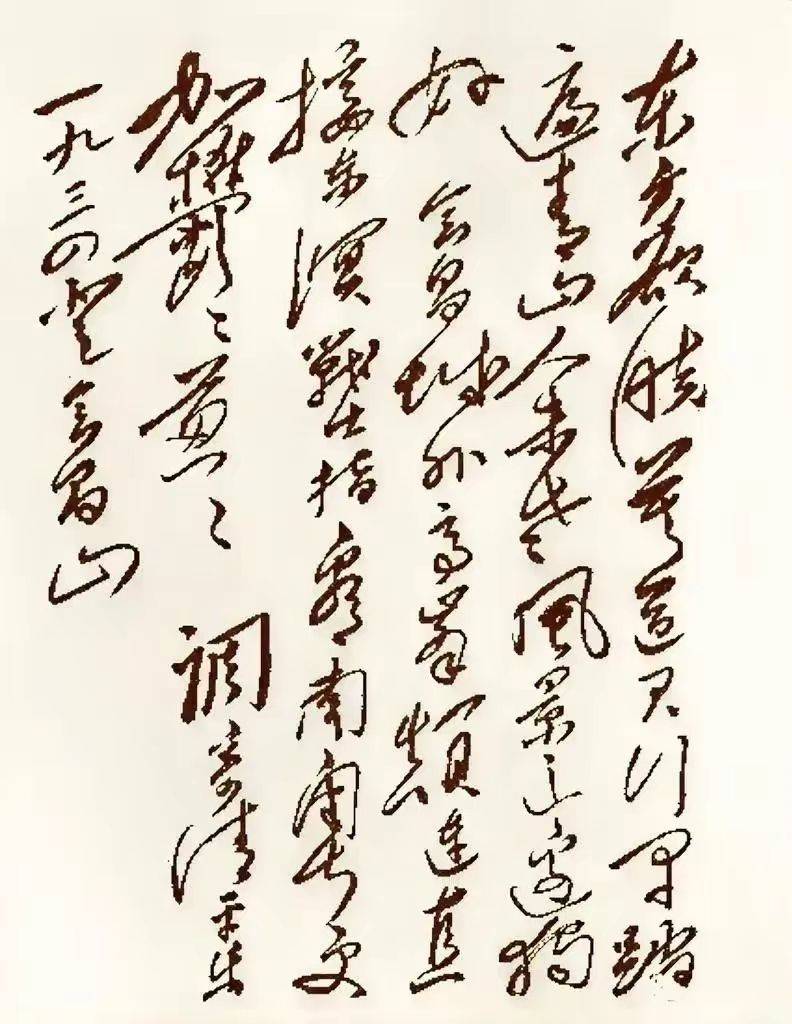 东方欲晓莫道君行早踏
遍青山人未老風景这边独
好 会昌城外高峯顛连直
接东溟戰士指看南粤更
加鬱〻葱〻 調寄清平乐
一九三四登会昌山